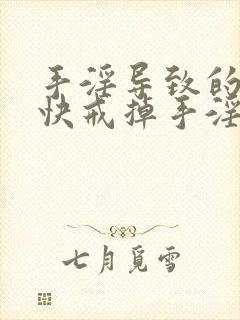 手淫导致的
快戒掉手淫
七月觅雪